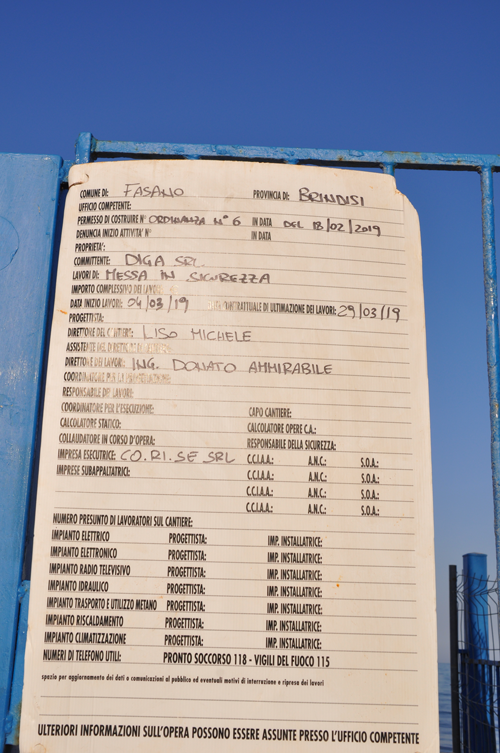 COMUNE DI: FASANO PROVINCIA DI: BRINDISI
UFFICIO COMPETENTE:
PERMESSO DI COSTRUIRE N° ORDINANZA N° 6 IN DATA DEL 18/02/2019
DENUNCIA INIZIO ATTIVITA' N° IN DATA
PROPRIETA':
COMMITTENTE: DIGA SRL
LAVORI DI: MESSA IN SICUREZZA
IMPORTO COMPLESSIVO DEI LAVORI
DATA INIZIO LAVORI: 04/03/19 CONTRATTUALE DI ULTIMAZIONE DEI LAVORI: 29/03/19
PROGETTISTA:
DIRETTORE DEL CANTIERE: LISO MICHELE
ASSISTENTE
DIRETTORE DEI LAVORI: ING. DONATO AMMIRABILE
COORDINATORE PER LA
RESPONSABILE DEI LAVORI:
COORDINATORE PER L'ESECUZIONE: CAPO CANTIERE:
CALCOLATORE STATICO: CALCOLATORE OPERE C.A.:
COLLAUDATORE IN CORSO D'OPERA: RESPONSABILE DELLA SICUREZZA:
IMPRESA ESECUTRICE: CO.RI.SE SRL C.C.I.A.A.: A.N.C.: S.O.A.:
IMPRESE SUBAPPALTATRICI: C.C.I.A.A.: A.N.C.: S.O.A.:
C.C.I.A.A.: A.N.C.: S.O.A.:
C.C.I.A.A.: A.N.C.: S.O.A.:
NUMERO PRESUNTO DI LAVORATORI SUL CANTIERE:
IMPIANTO ELETTRICO PROGETTISTA: IMP. INSTALLATRICE:
IMPIANTO ELETTRONICO PROGETTISTA: IMP. INSTALLATRICE:
IMPIANTO RADIO TELEVISIVO PROGETTISTA: IMP. INSTALLATRICE:
IMPIANTO IDRAULICO PROGETTISTA: IMP. INSTALLATRICE:
IMPIANTO TRASPORTO E UTILIZZO METANO PROGETTISTA: IMP. INSTALLATRICE:
IMPIANTO RISCALDAMENTO PROGETTISTA: IMP. INSTALLATRICE:
IMPIANTO CLIMATIZZAZIONE PROGETTISTA: IMP. INSTALLATRICE:
NUMERI DI TELEFONO UTILI: PRONTO SOCCORSO 118 - VIGILI DEL FUOCO 115
spazio per aggiornamento dei dati o comunicazioni al pubblico ed eventuali motivi di interruzione e ripresa dei lavori
ULTERIORI INFORMAZIONI SULL'OPERA POSSONO ESSERE ASSUNTE PRESSO L'UFFICIO COMPETENTE